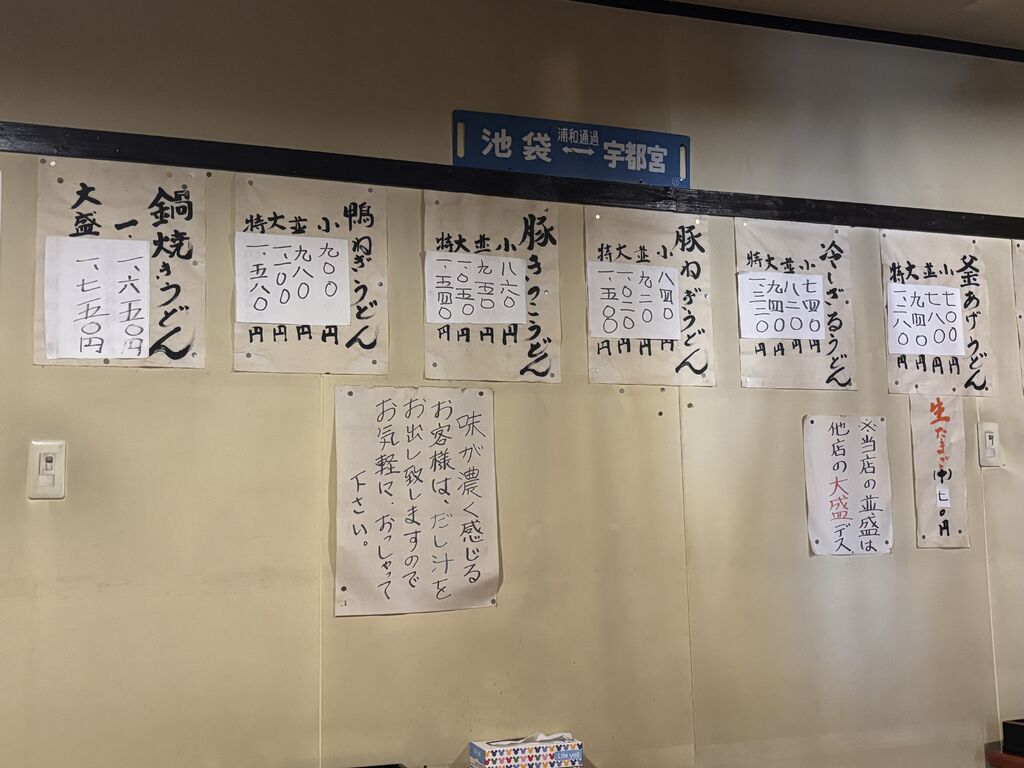 池袋 浦和通過 ↔ 宇都宮
釜あげうどん
小 七〇〇円
並 七八〇円
大 九四〇円
特 一、二八〇円
冷しざるうどん
小 七四〇円
並 八二〇円
大 円
特 一、三二〇円
豚ねぎうどん
小 八四〇円
並 九二〇円
大 一、〇二〇円
特 一、五〇〇円
豚きのこうどん
小 八六〇円
並 九五〇円
大 一、〇五〇円
特 一、五四〇円
鴨ねぎうどん
小 九〇〇円
並 九八〇円
大 一、一〇〇円
特 一、五八〇円
鍋焼きうどん
一、六五〇円
大盛 一、七五〇円
生たまご(中)七〇円
※当店の並盛は
他店の大盛デス
味が濃く感じる
お客様は、だし汁を
お出し致しますので
お気軽に、おっしゃって
下さい。